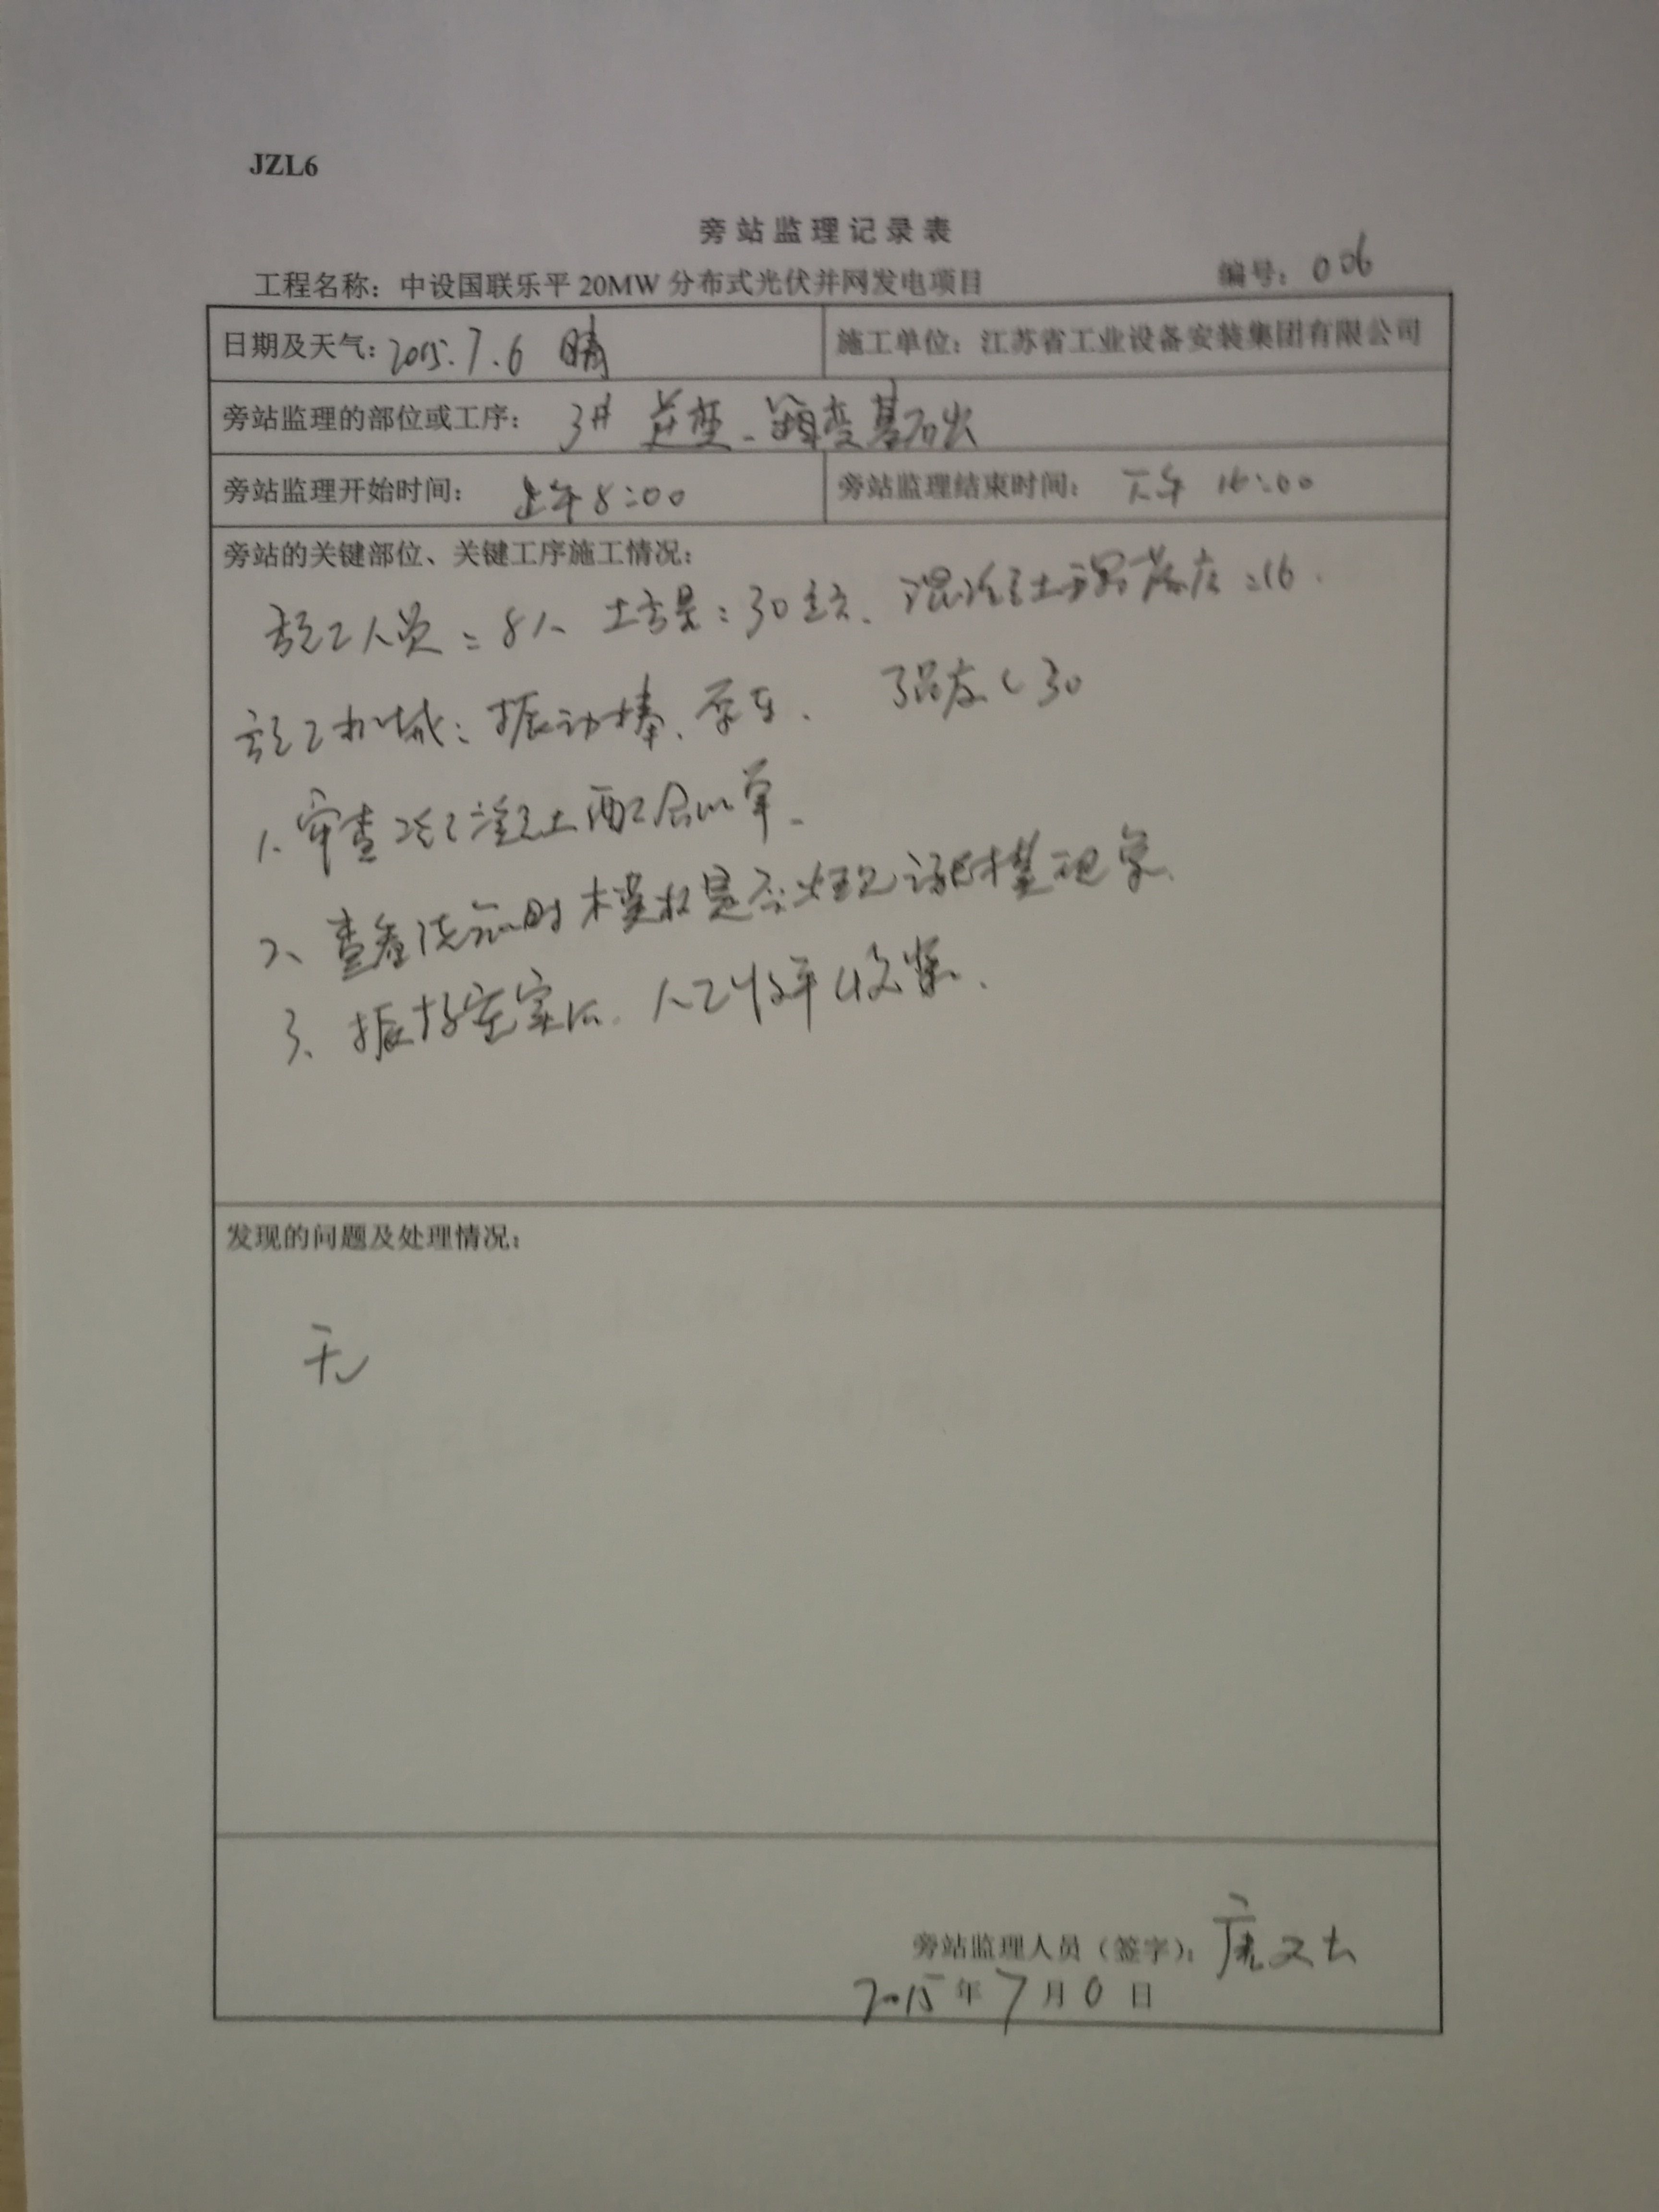 JZL6
旁站监理记录表
工程名称：中设国联乐平 20MW 分布式光伏并网发电项目 编号：006
日期及天气：2015.7.6 晴 施工单位：江苏省工业设备安装集团有限公司
旁站监理的部位或工序：3# 逆变、箱变基础
旁站监理开始时间：上午8:00 旁站监理结束时间：下午 16:00
旁站的关键部位、关键工序施工情况：
施工人员：8人 土方量：30立方、混凝土坍落度：16.
施工机械：振动棒、泵车、 强度C30
1、审查混凝土配合比单.
2、查看浇筑时模板是否出现跑模现象.
3、振捣密实后.人工收平收紧.
发现的问题及处理情况：
无
旁站监理人员（签字）：唐文
2015年7月 日